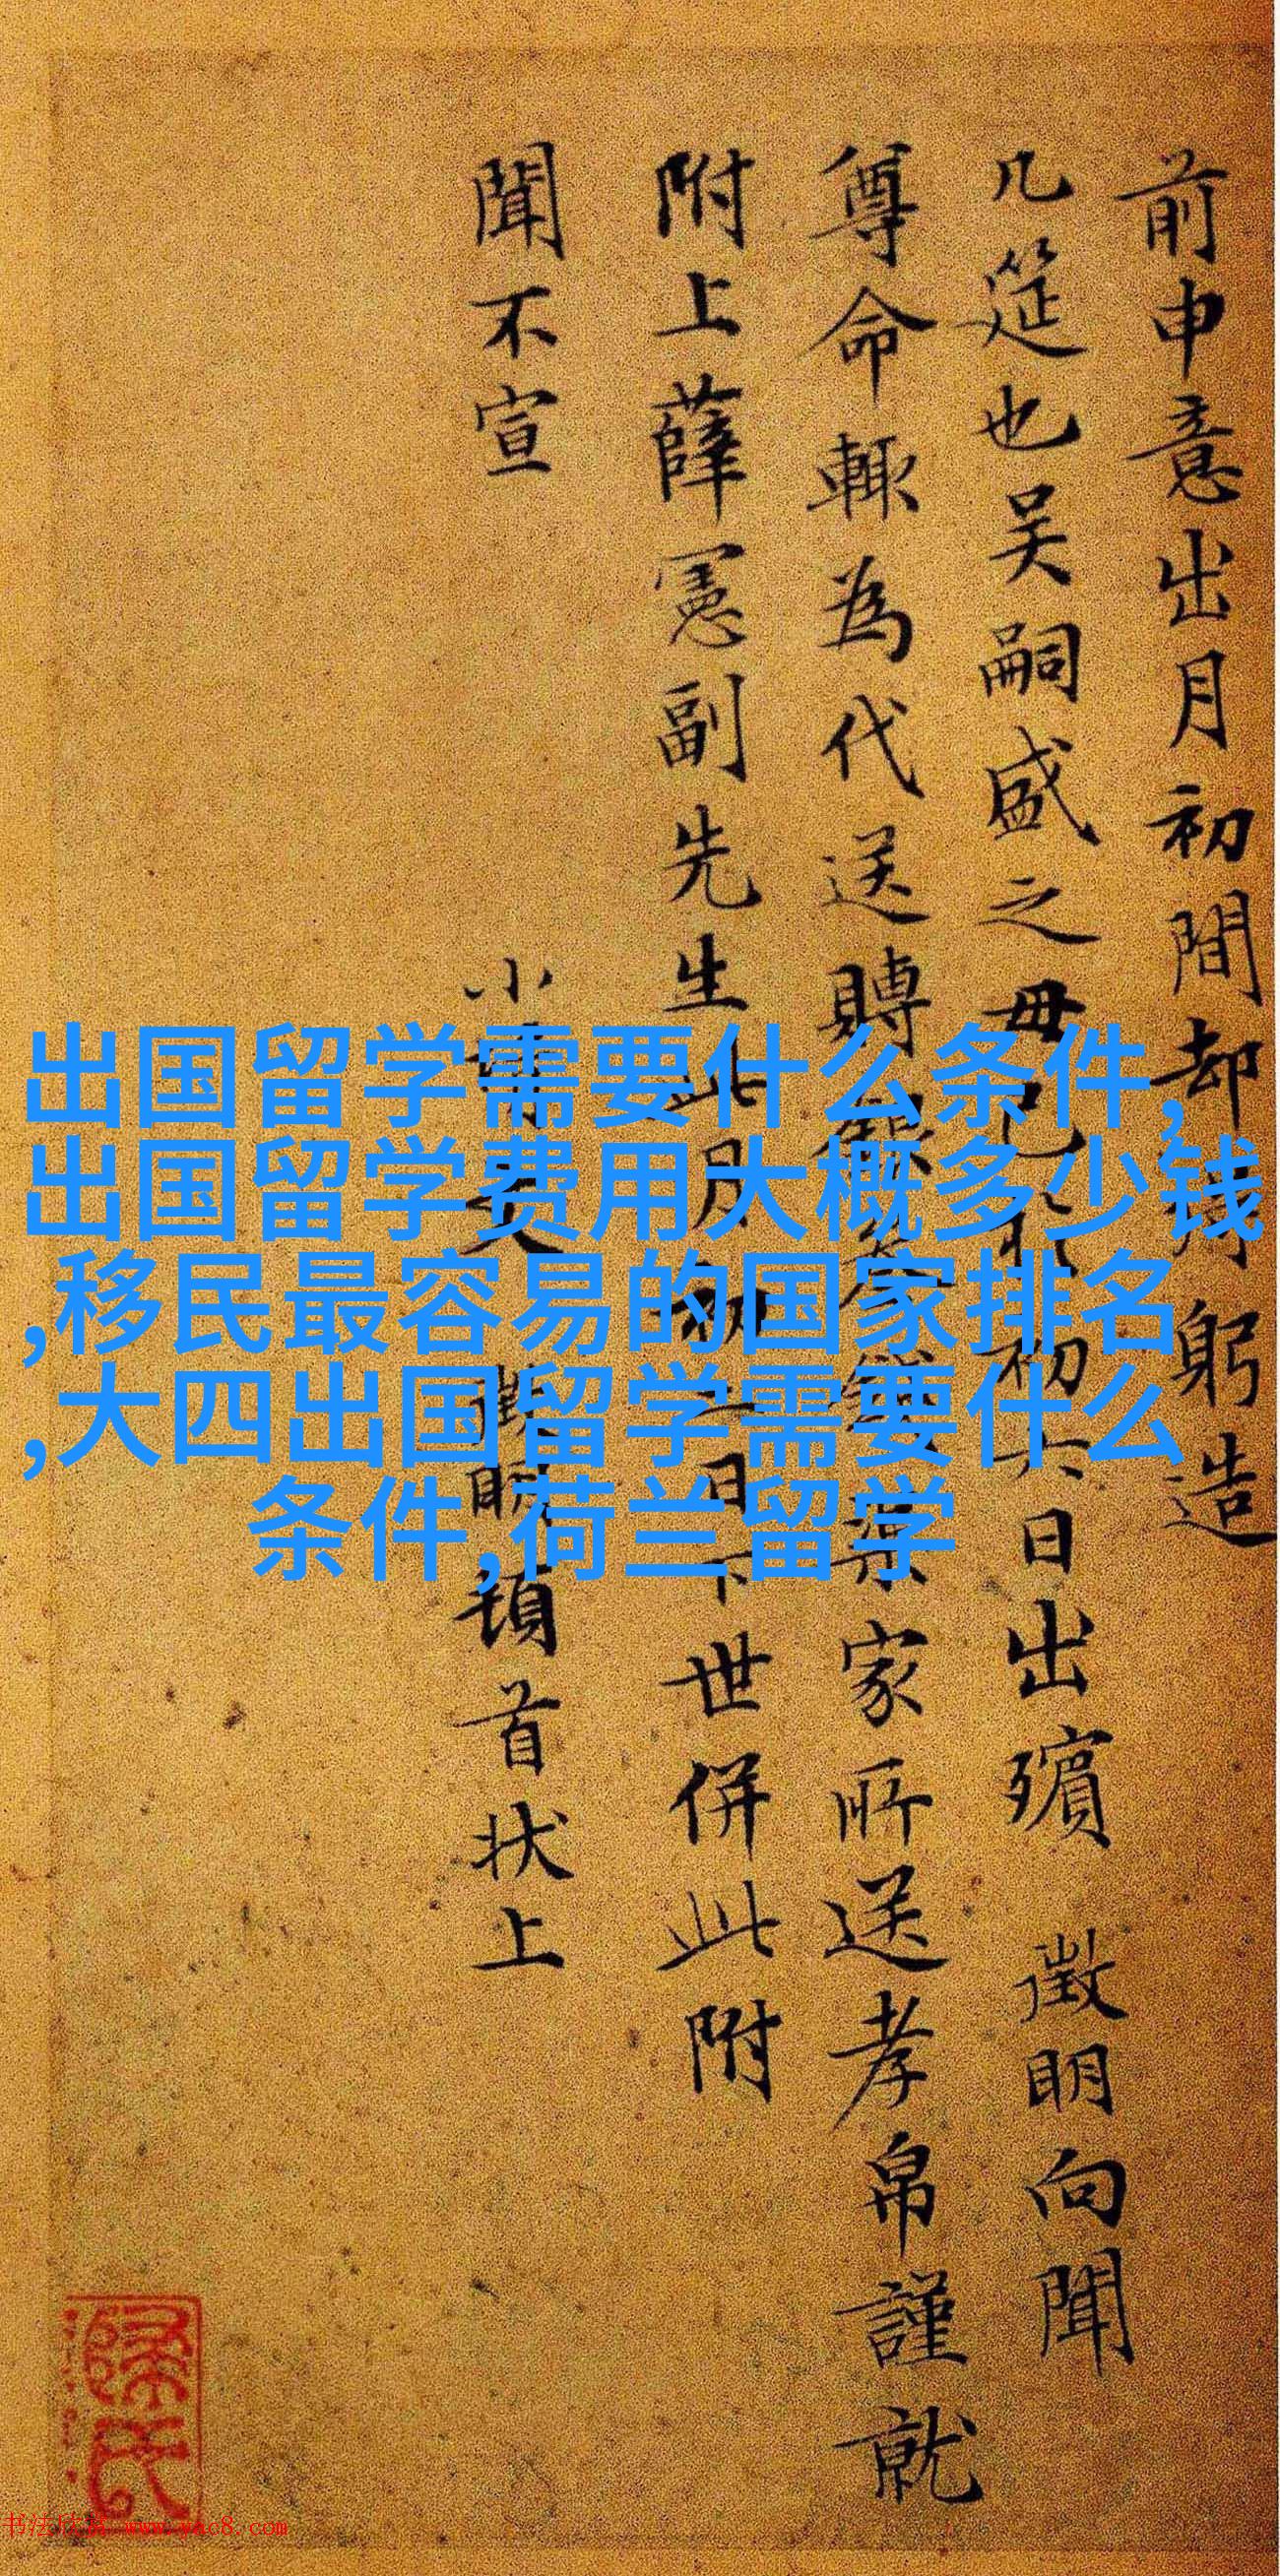 前申意出月初間却躬造
几筵也吴嗣盛之毋初六日出殯 徵明向聞
尊命輒為代送賻家所送孝帛謹就
附上薛憲副先生此月日下世併此附
聞不宣
小頓首狀上
出国留学需要什么条件,
出国留学费用大概多少钱
,移民最容易的国家排名
,大四出国留学需要什么
条件,荷兰留学
书法欣赏 www.yac8.com